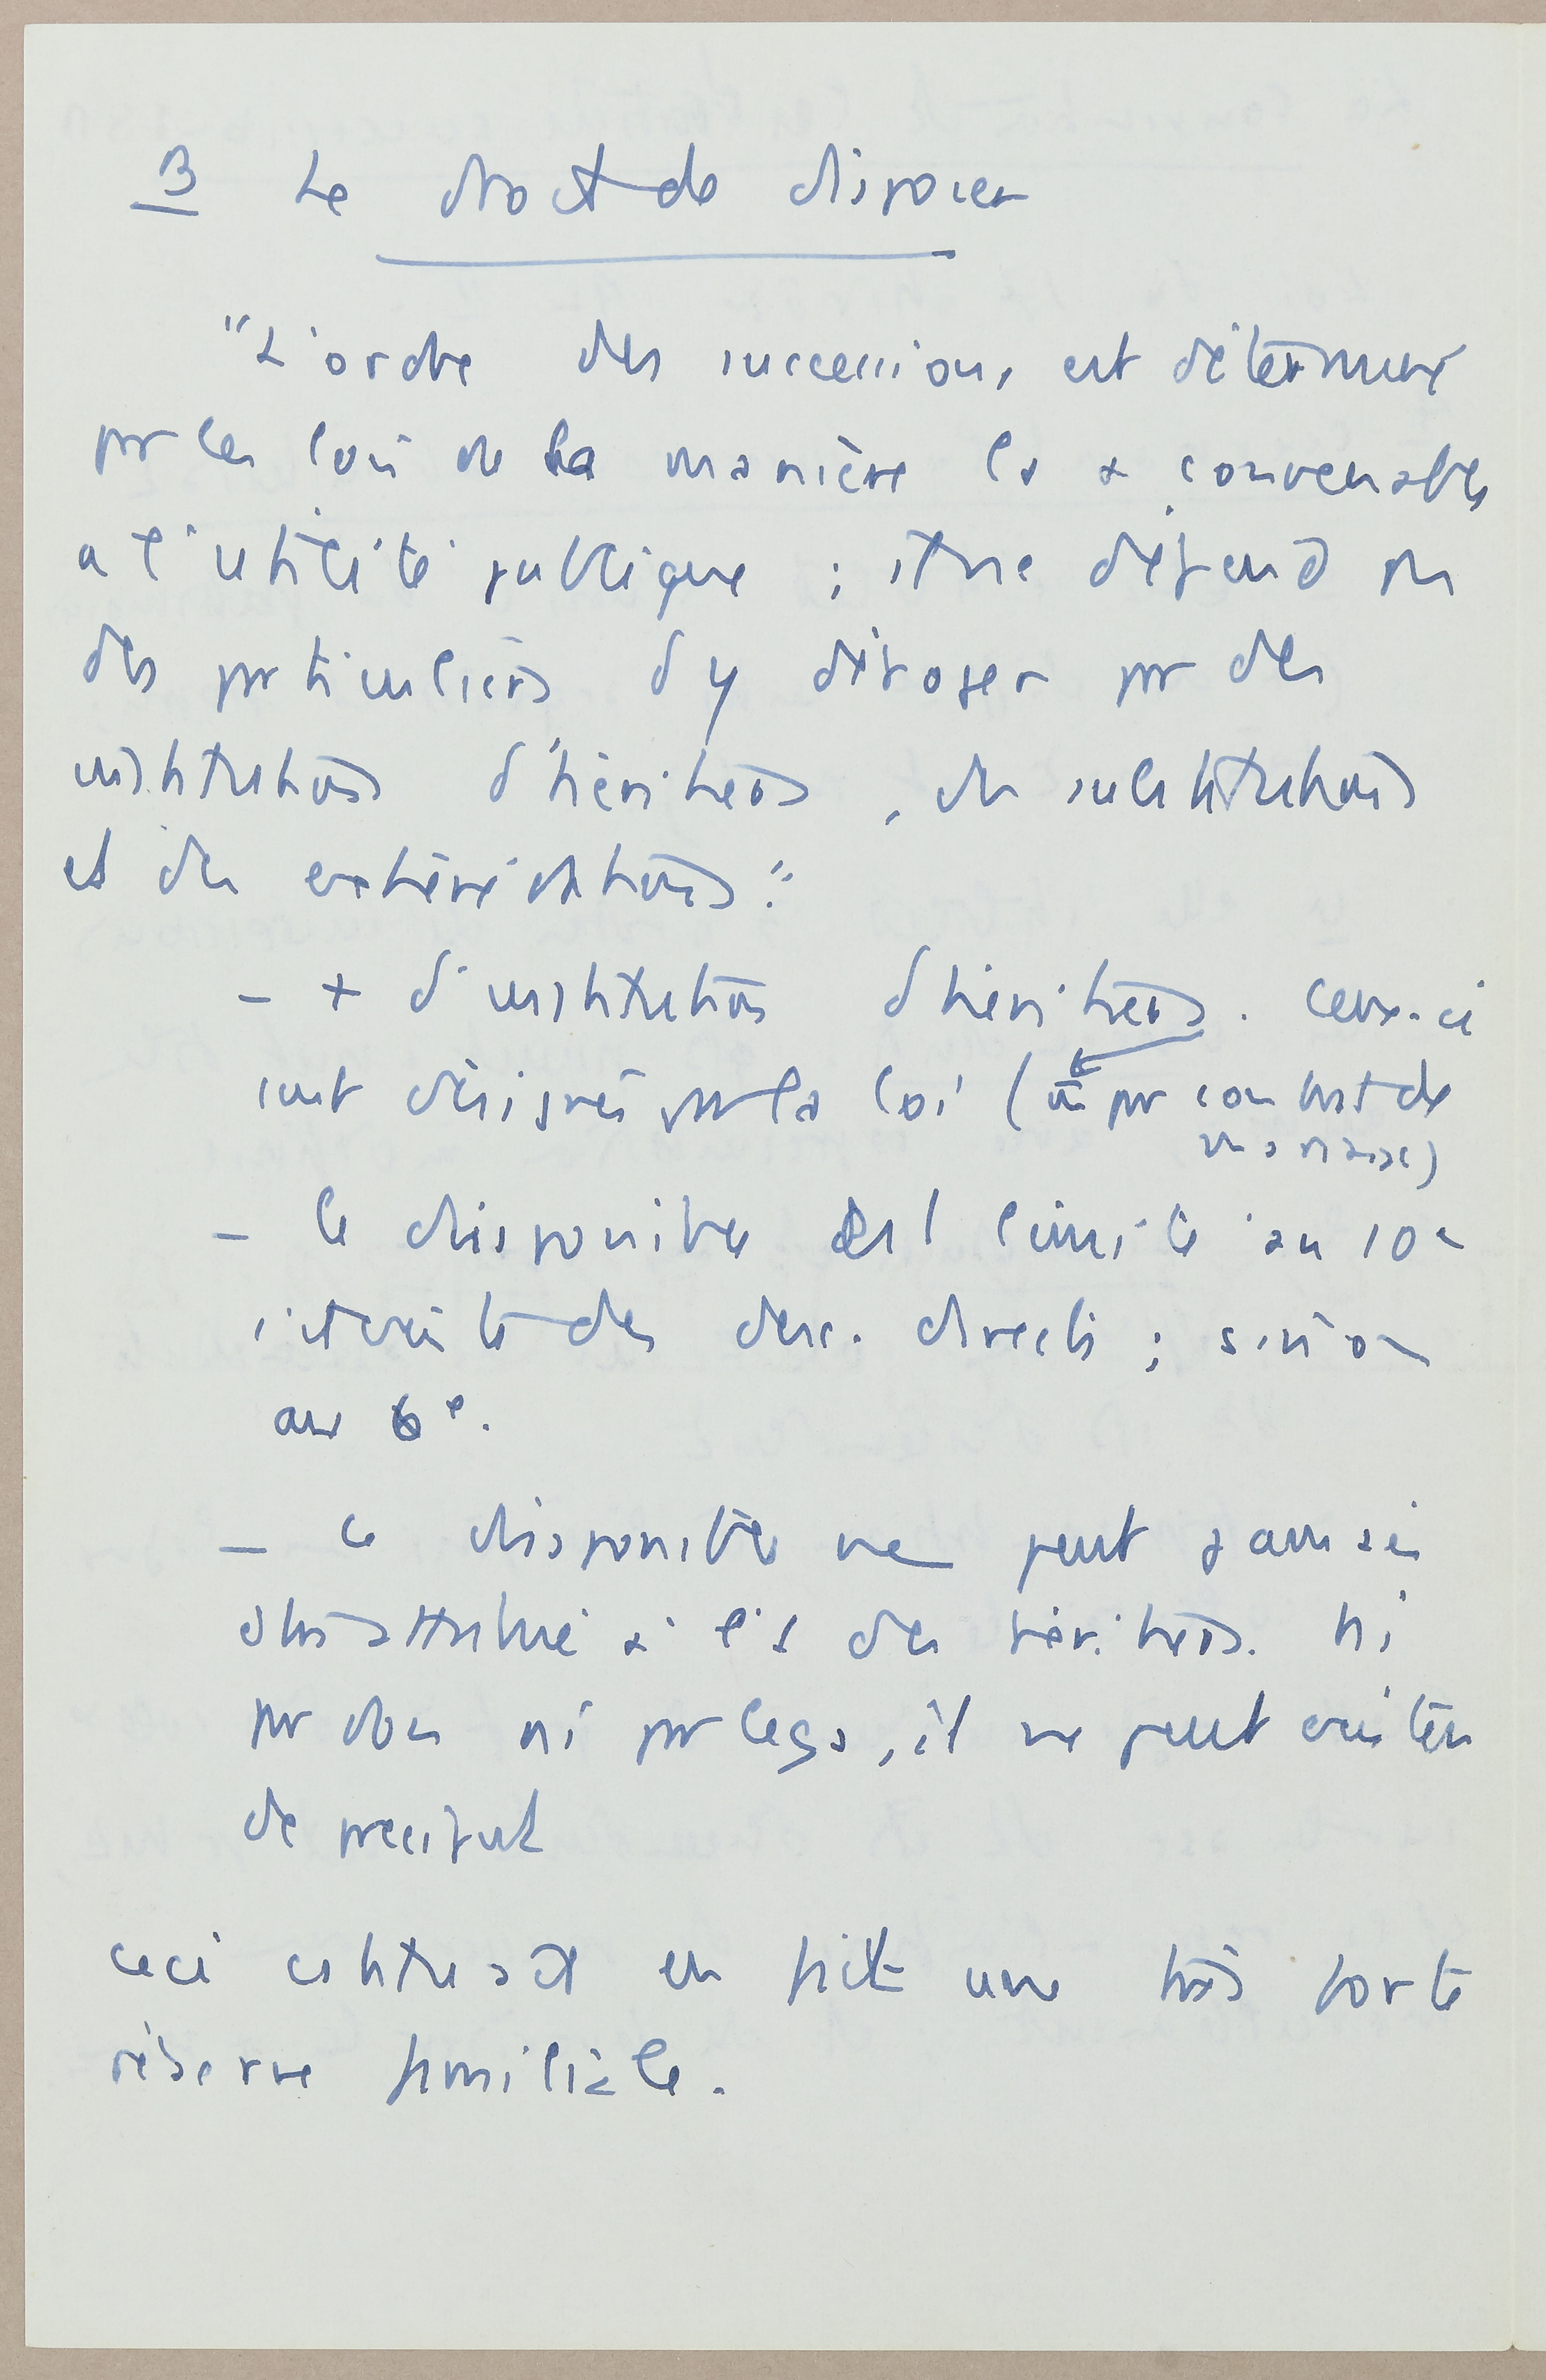 B Le droit de disposer
"L'ordre des successions est déterminé
par les lois de la manière la + convenable
a l'utilité publique ; il ne dépend pas
des particuliers d'y déroger par des
institutions d'héritiers, des substitutions
et des exhérédations."
- + d'institution d'héritiers. Ceux-ci
sont désignés par la loi (ni par contrat de
mariage)
- le disponible est limité au 10e
s'il existe des desc. directs ; sinon
au 6e.
- ce disponible ne peut jamais
être attribué à l'1 des héritiers. Ni
par don ni par legs, il ne peut exister
de preciput
ceci constituait en fait une très forte
réserve familiale.